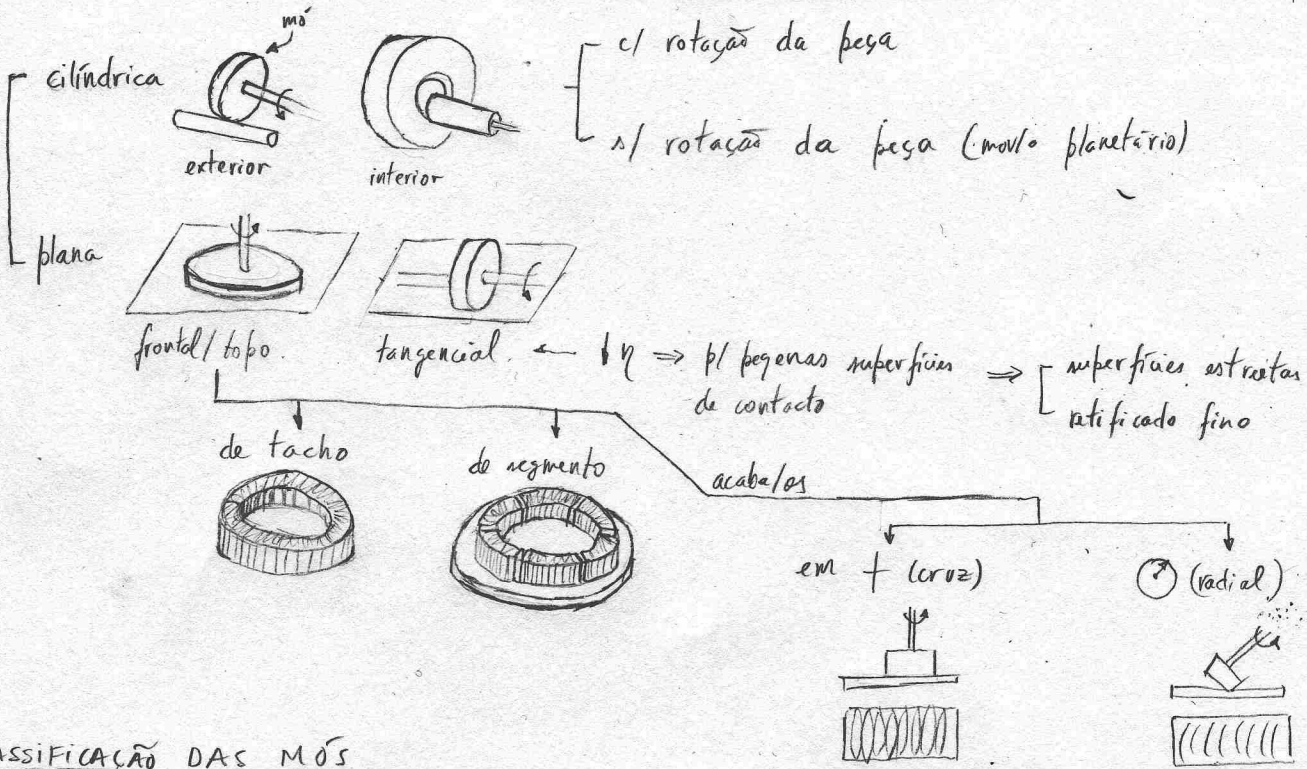 mó
cilíndrica
exterior
interior
c/ rotação da peça
s/ rotação da peça (mov/o planetário)
plana
frontal/topo.
tangencial. ← ↓η ⇒ p/ pequenas superfícies de contacto ⇒ superfícies estreitas
retificado fino
de tacho
de segmento
acaba/os
em + (cruz)
(radial)
ASSIFICAÇÃO DAS MÓS